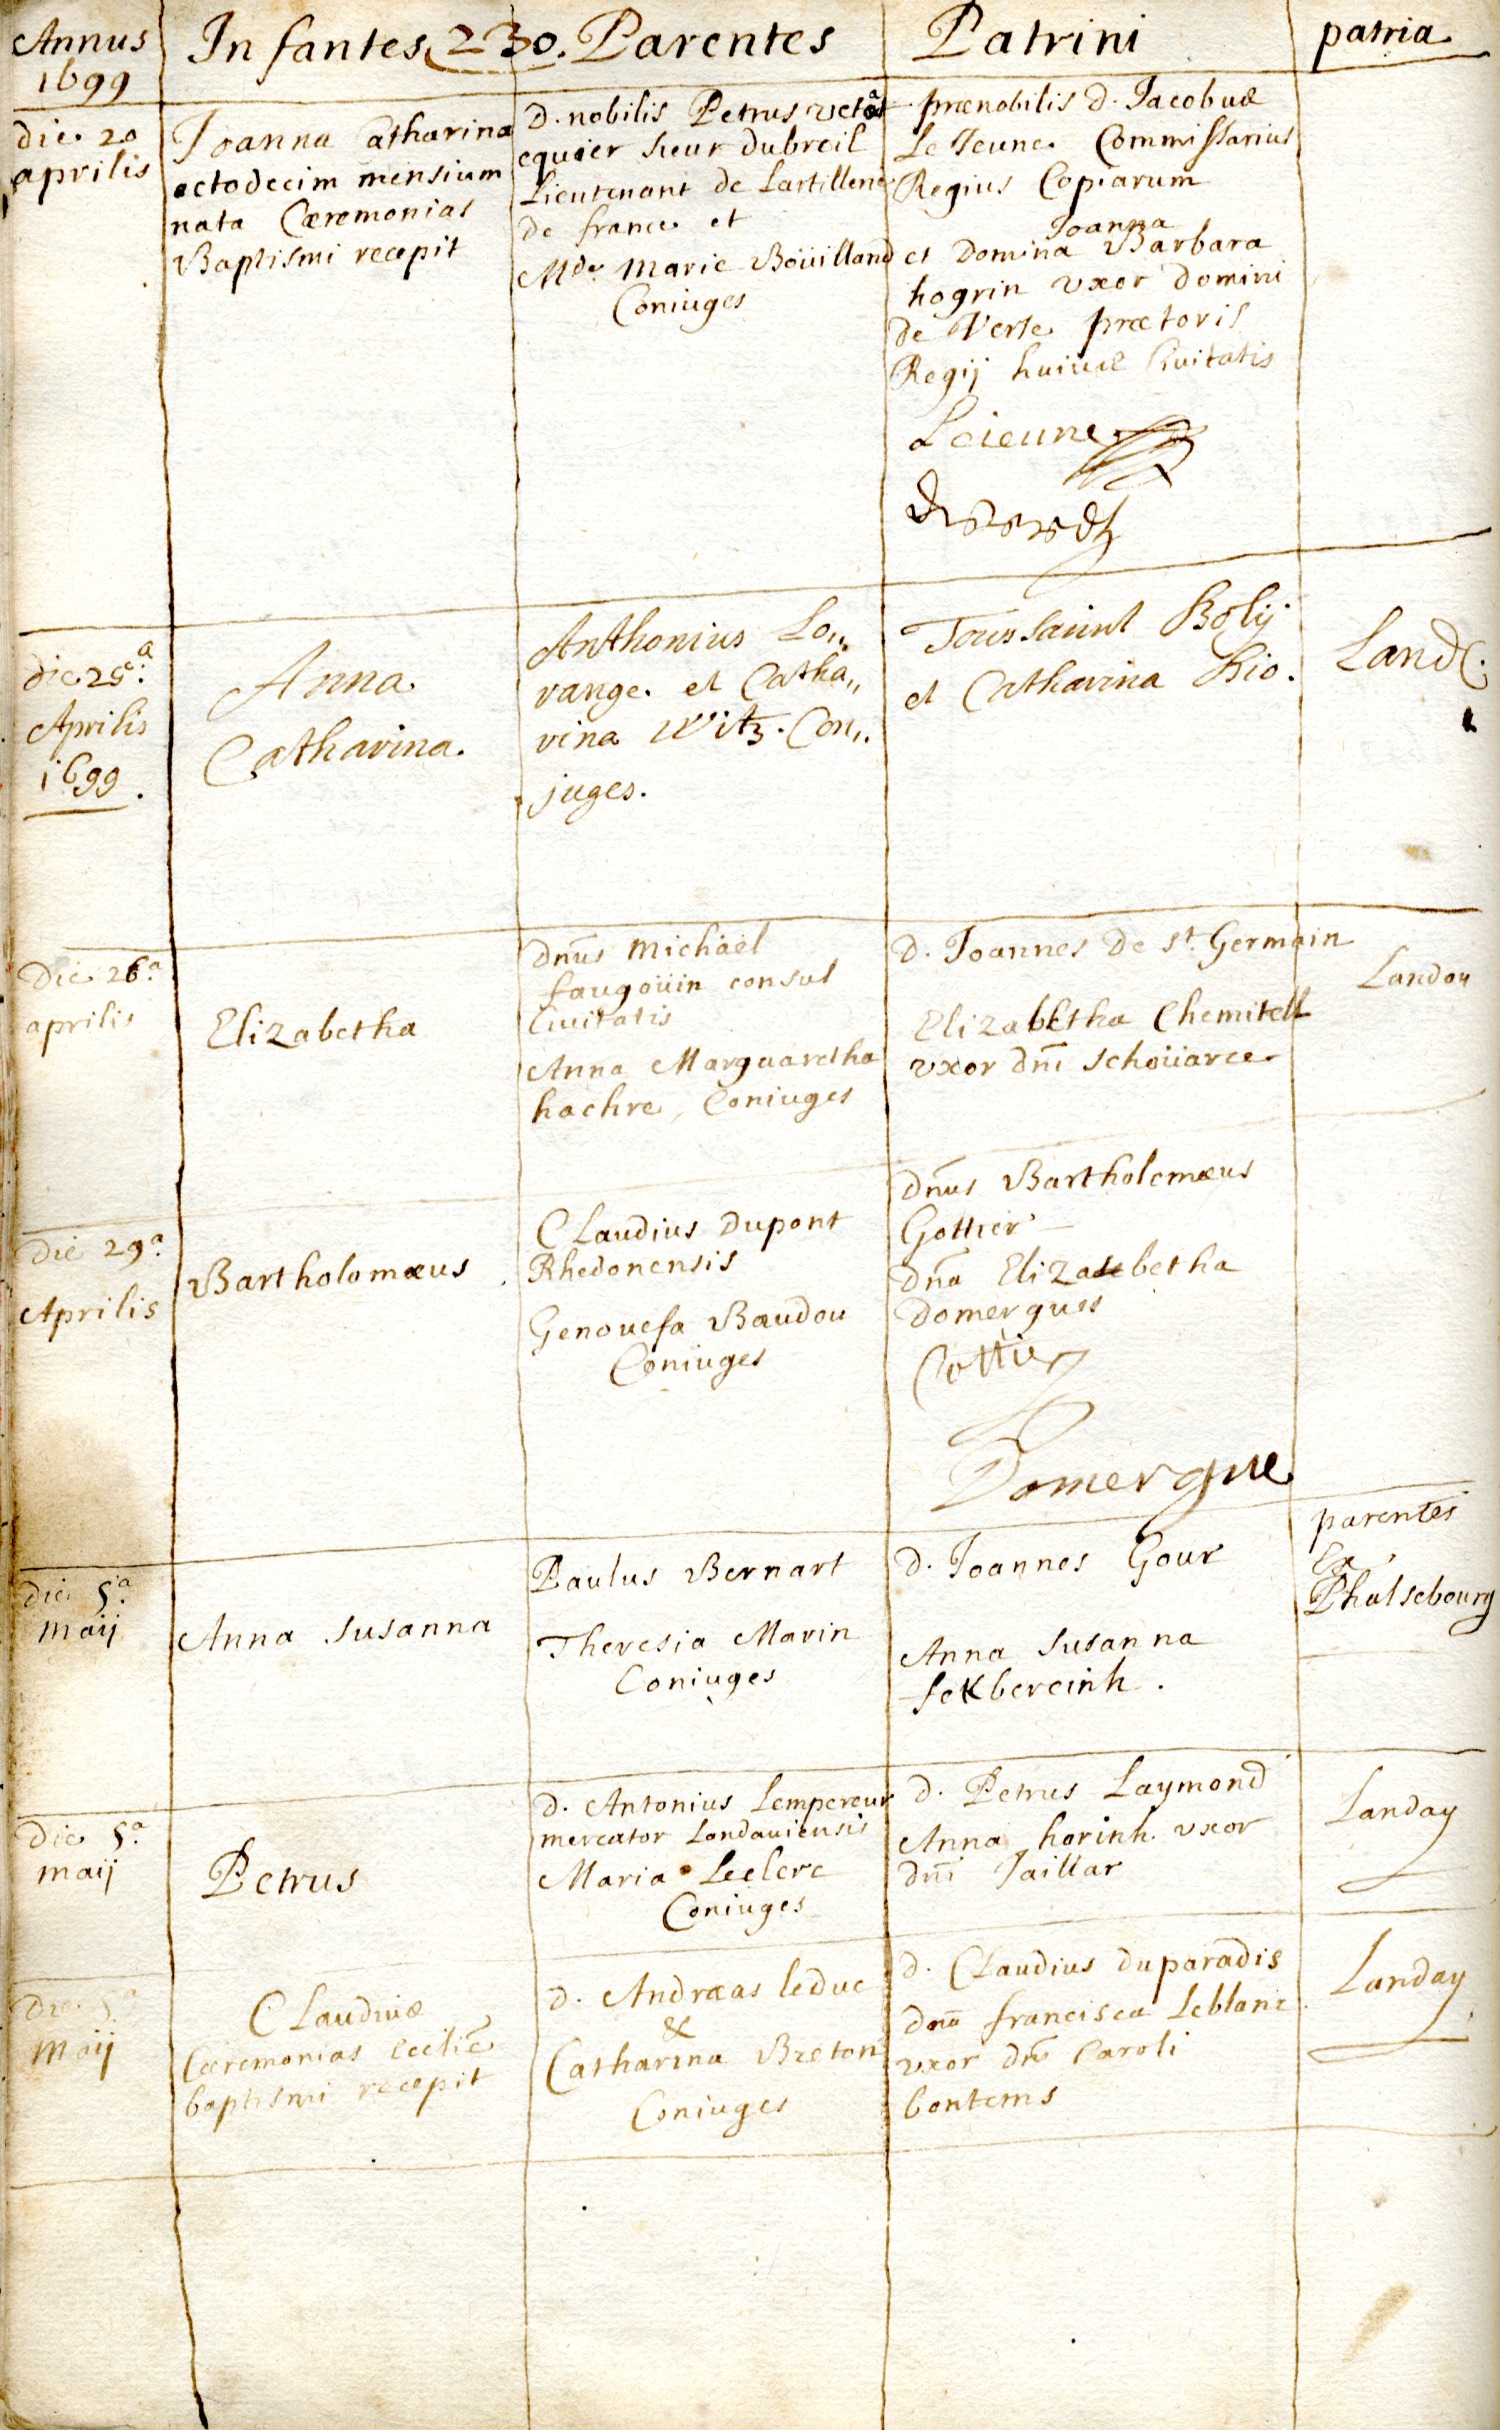 Annus
1699
Infantes 230. Parentes
Patrini
patria
die 20
aprilis
Joanna Catharina
octodecim mensium
nata Cæremonias
Baptismi recepit
D. nobilis Petrus
equier sieur dubreil
Lieutenant de Lartillerie
de france et
Mde Marie Boüilland
Coniuges
prænobilis d. Jacobus
Le Jeune Commissarius
Regius Copiarum
Joanna
et Domina Barbara
hogrin vxor domini
de Verse prætoris
Regij huius Ciuitatis
Leieune
die 25.a
Aprilis
1699.
Anna
Catharina.
Anthonius Lo,,
range. et Catha,,
rina Witz. Con,,
juges.
Toussaint Boly
et Catharina Rio.
Land.
Die 26.a
aprilis
Elizabetha
dnus Michaël
faugoüin consul
Ciuitatis
Anna Marguaretha
hachre, Coniuges
D. Joannes De st. Germain
Elizabetha Chemitell
vxor dni schoüarce
Landau
Die 29.a
Aprilis
Bartholomæus
Claudius dupont
Rhedonensis
Genouefa Baudou
Coniuges
dnus Bartholemæus
Gottier
dna Elizabetha
Domergues
Cottier
Domergue
die 5.a
Maij
Anna Susanna
Paulus Bernart
Theresia Marin
Coniuges
D. Joannes Gour
Anna Susanna
fekbereinh.
parentes
Ex
Phalsebourg
Die 5.a
maij
Petrus
D. Antonius Lempereur
mercator Landauiensis
Maria Leclerc
Coniuges
d. Petrus Laymond
Anna horinh vxor
dni Jaillar
Landay
Die 5.a
Maij
Claudius
Cæremonias
baptismi recepit
D. Andræas leduc
&
Catharina Breton
Coniuges
d. Claudius duparadis
dna francisca Leblanc
vxor dni Caroli
bontems
Landay